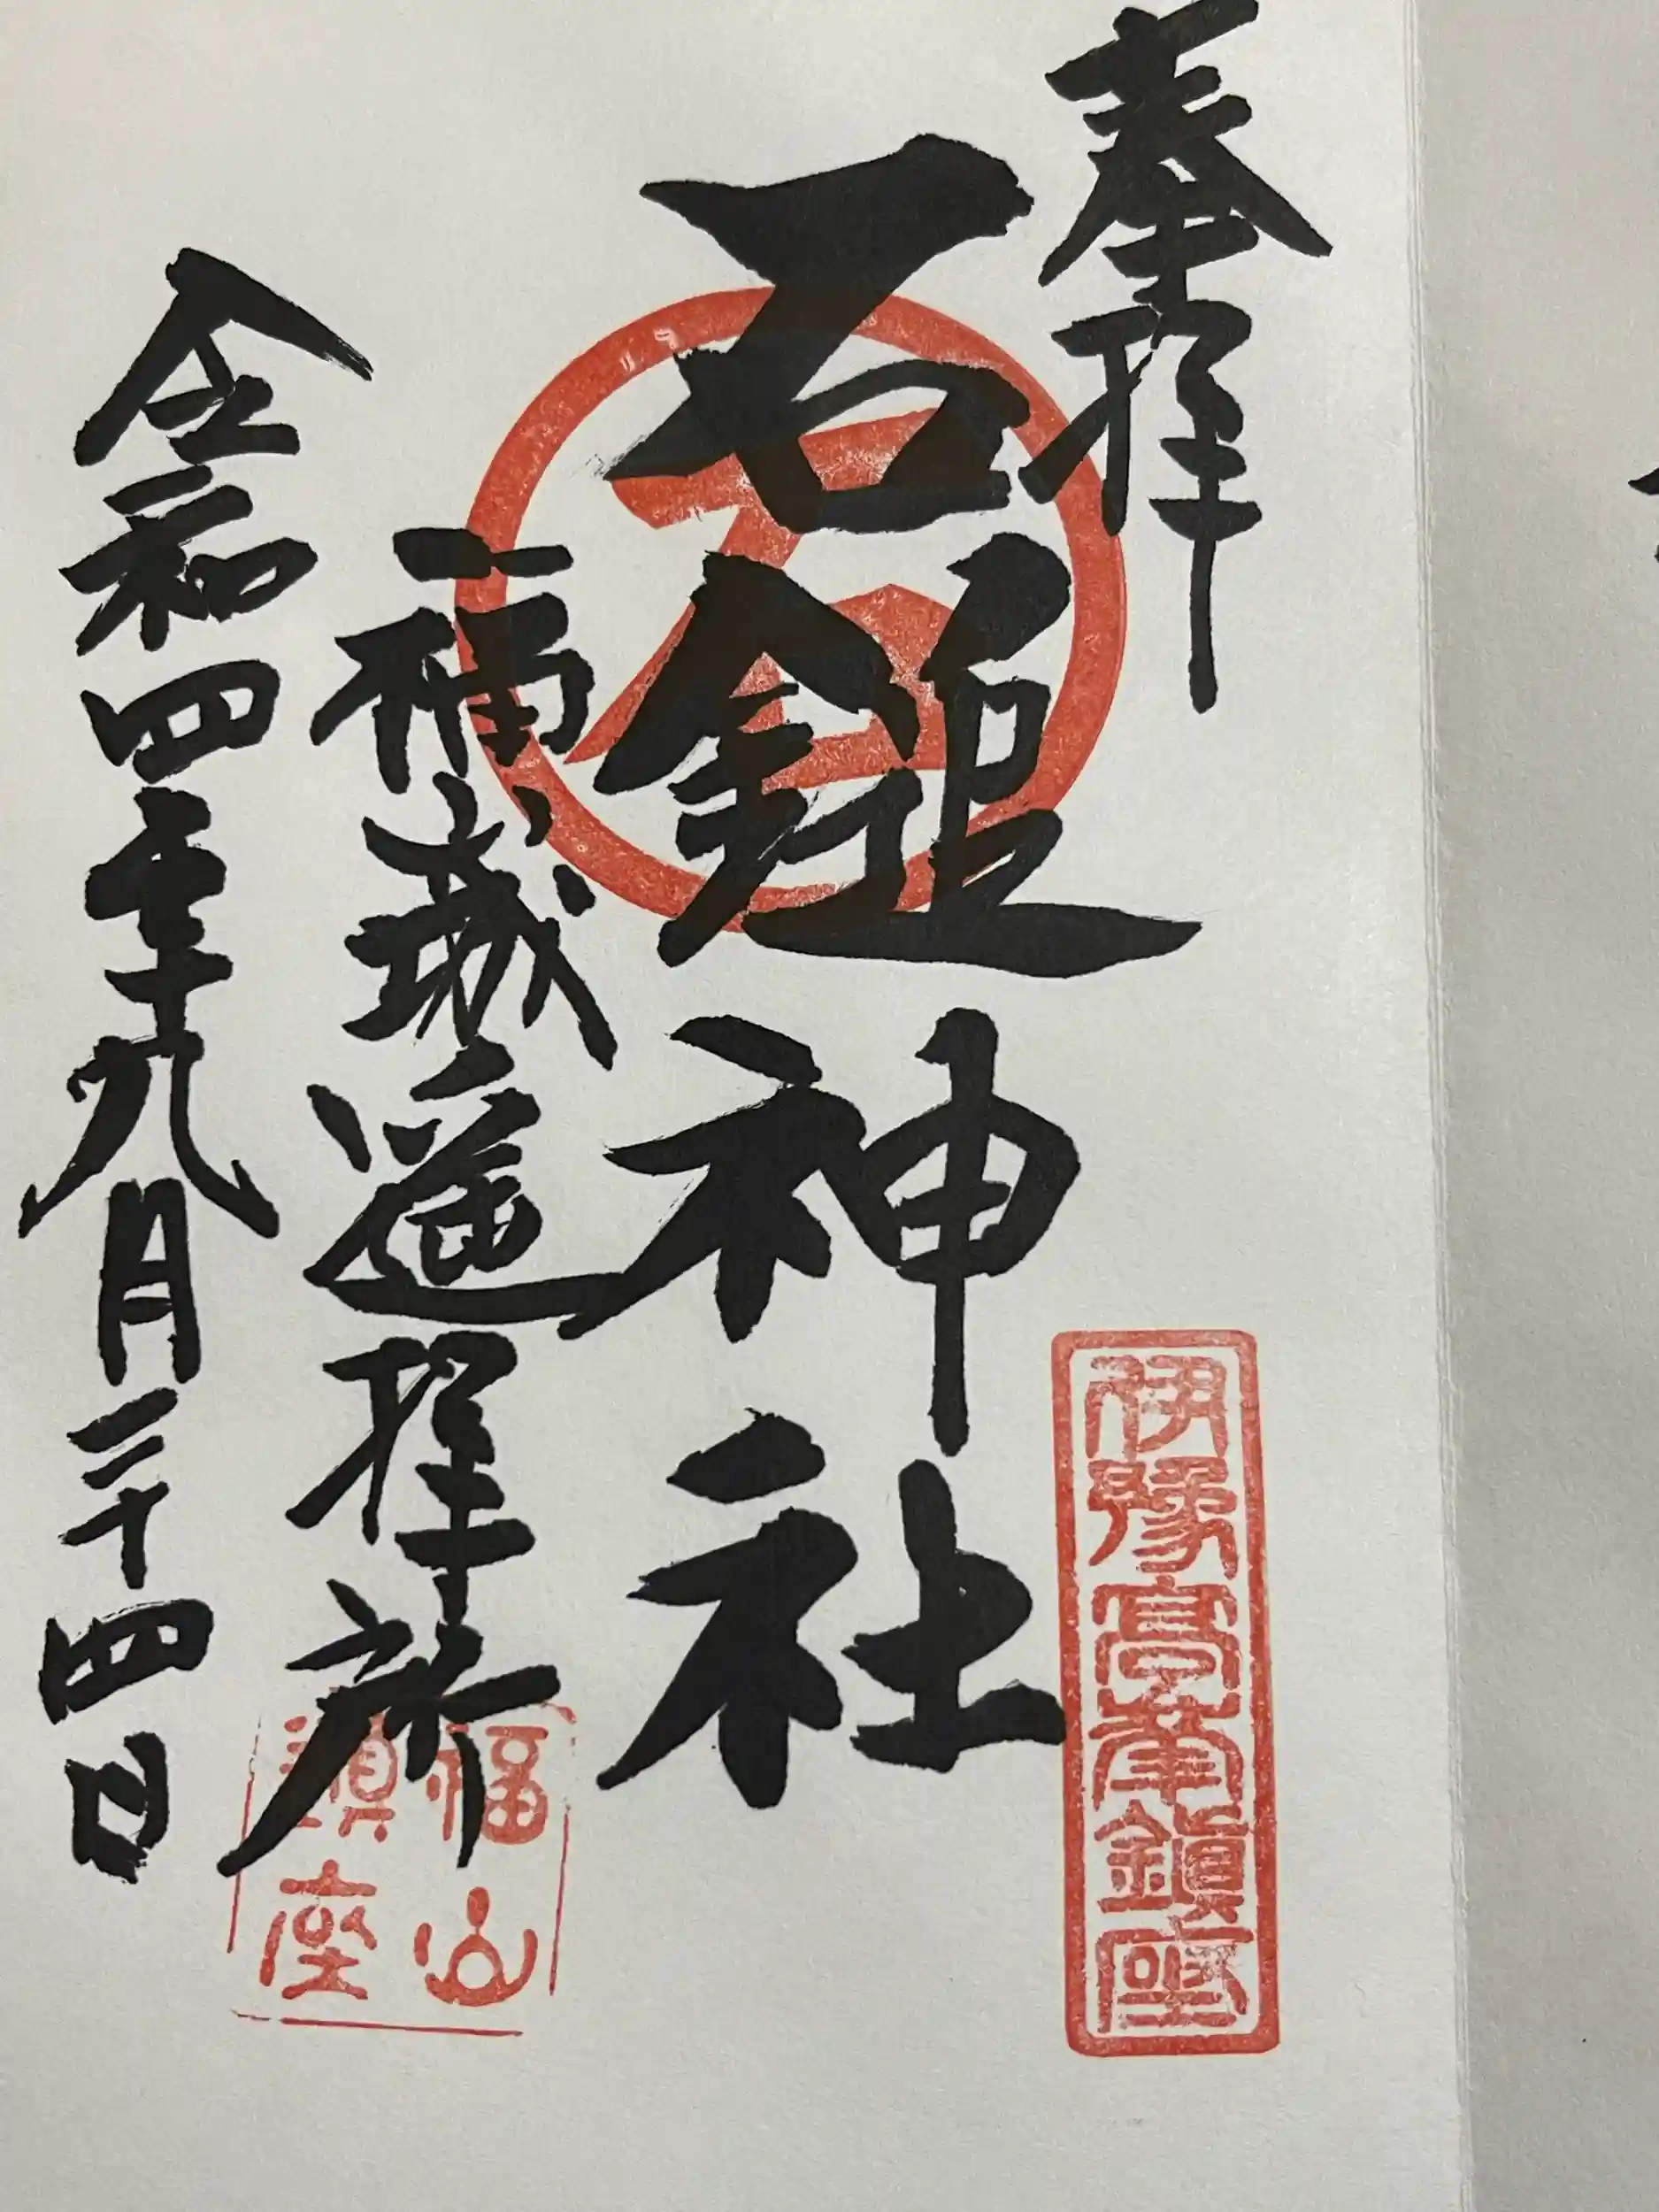 奉拝
伊豫高峯鎮座
石鎚神社
石
福城遥拝所
福山
鎮座
令和四年九月二十四日